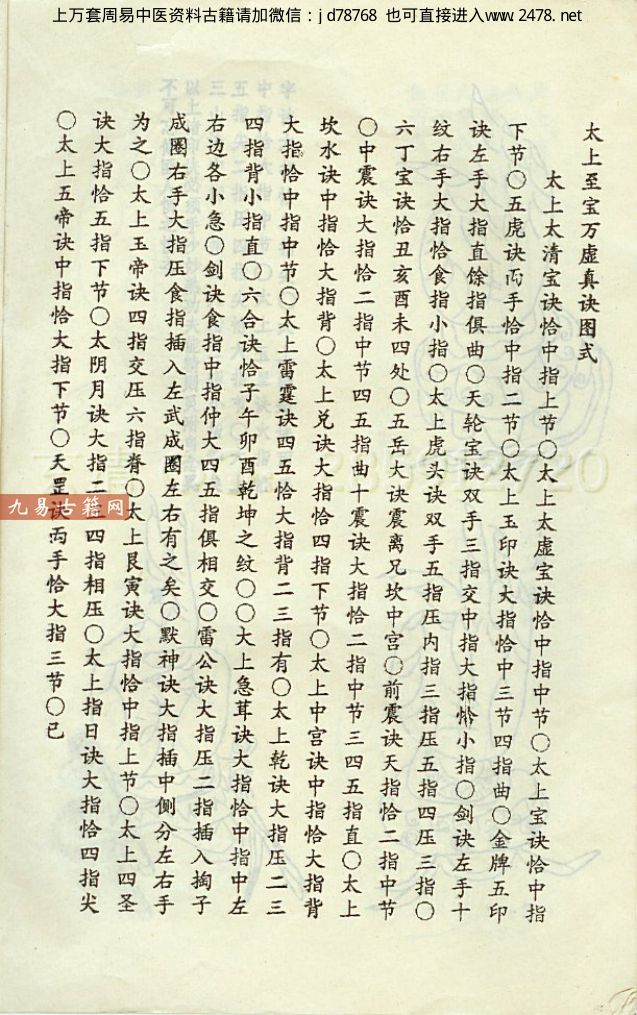 上万套周易中医资料古籍请加微信：jd78768 也可直接进入www.2478.net
太上至宝万虚真诀图式
太上太清宝诀恰中指上节〇太上太虚宝诀恰中指中节〇太上宝诀恰中指
下节〇五虎诀两手恰中指二节〇太上玉印诀大指恰中三节四指曲〇金牌五印
诀左手大指直馀指俱曲〇天轮宝诀双手三指交中指大指恰小指〇剑诀左手十
纹右手大指恰食指小指〇太上虎头诀双手五指压内指三指压五指四压三指〇
六丁宝诀恰丑亥酉未四处〇五岳大诀震离兄坎中宫〇前震诀天指恰二指中节
〇中震诀大指恰二指中节四五指曲十震诀大指恰二指中节三四五指直〇太上
坎水诀中指恰大指背〇太上兑诀大指恰四指下节〇太上中宫诀中指恰大指背
大指恰中指中节〇太上雷霆诀四五恰大指背二三指有〇太上乾诀大指压二三
四指背小指直〇六合诀恰子午卯酉乾坤之纹〇〇大上急茸诀大指恰中指中左
右边各小急〇剑诀食指中指仲大四五指俱相交〇雷公诀大指压二指插入掏子
成圈右手大指压食指插入左武成圈左右有之矣〇默神诀大指插中侧分左右手
为之〇太上玉帝诀四指交压六指脊〇太上艮寅诀大指恰中指上节〇太上四圣
诀大指恰五指下节〇太阴月诀大指二三四指相压〇太上指日诀大指恰四指尖
〇太上五帝诀中指恰大指下节〇天罡诀两手恰大指三节〇已
九易古籍网